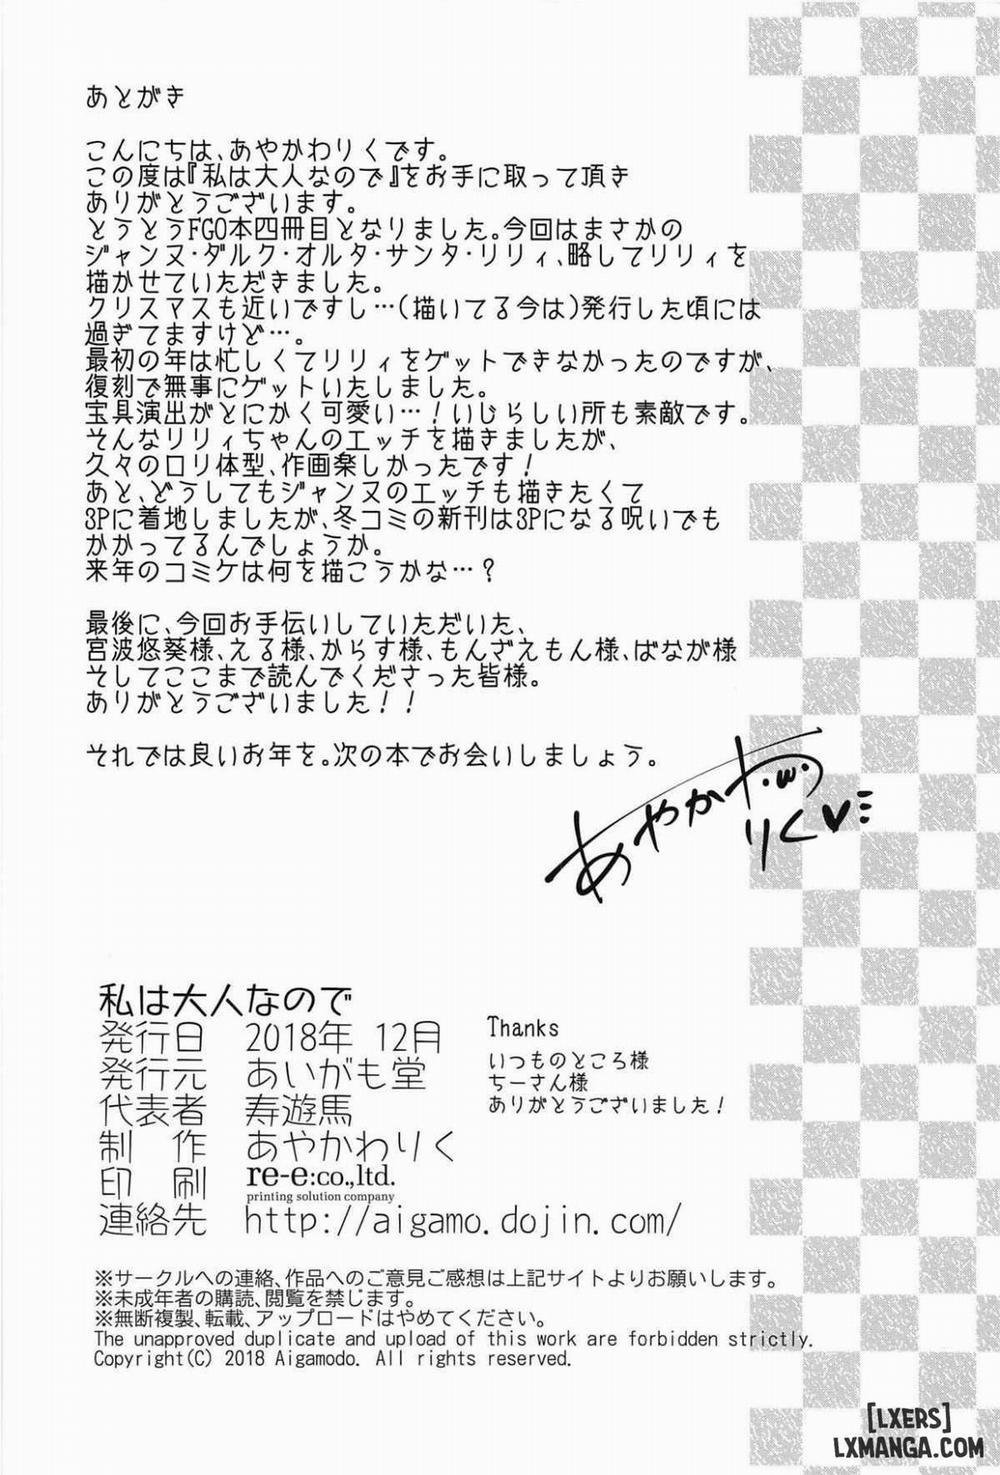 あとがき
こんにちは、あやかわりくです。
この度は『私は大人なので』をお手に取って頂き
ありがとうございます。
とうとうFGO本四冊目となりました。今回はまさかの
ジャンヌ・ダルク・オルタ・サンタ・リリィ、略してリリィを
描かせていただきました。
クリスマスも近いですし…(描いてる今は)発行した頃には
過ぎてますけど…。
最初の年は忙しくてリリィをゲットできなかったのですが、
復刻で無事にゲットいたしました。
宝具演出がとにかく可愛い…！いじらしい所も素敵です。
そんなリリィちゃんのエッチを描きましたが、
久々のロリ体型、作画楽しかったです！
あと、どうしてもジャンヌのエッチも描きたくて
3Pに着地しましたが、冬コミの新刊は3Pになる呪いでも
かかってるんでしょうか。
来年のコミケは何を描こうかな…？
最後に、今回お手伝いしていただいた、
宮波悠葵様、える様、からす様、もんざえもん様、ばなが様
そしてここまで読んでくださった皆様。
ありがとうございました！！
それでは良いお年を。次の本でお会いしましょう。
あやかわりく
私は大人なので
発行日 2018年 12月
発行元 あいがも堂
代表者 寿遊馬
制 作 あやかわりく
印 刷 re-e:co.,ltd.
printing solution company
連絡先 http://aigamo.dojin.com/
Thanks
いつものところ様
ちーさん様
ありがとうございました！
※サークルへの連絡、作品へのご意見ご感想は上記サイトよりお願いします。
※未成年者の購読、閲覧を禁じます。
※無断複製、転載、アップロードはやめてください。
The unapproved duplicate and upload of this work are forbidden strictly.
Copyright(C) 2018 Aigamodo. All rights reserved.
[LXERS]
LXMANGA.COM